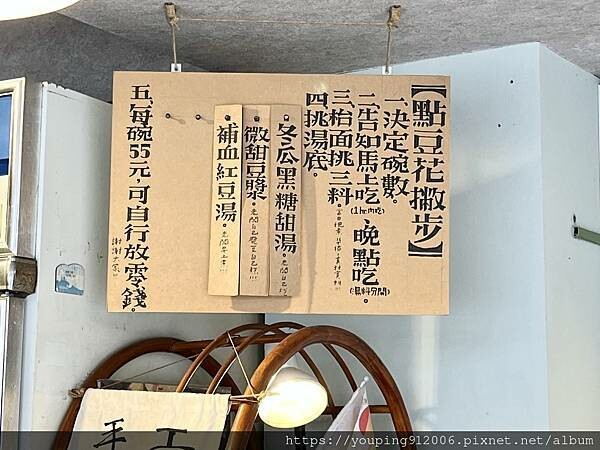 【點豆花撇步】
一、決定碗數。
二、告知馬上吃、晚點吃。
(1hr內吃)
(湯料分開)
三、枱面挑三料。
四、挑湯底。
冬瓜黑糖甜湯。
微甜豆漿。
補血紅豆湯。
五、每碗55元,可自行放零錢。
謝謝大家
手工
https://youping912006.pixnet.net/album